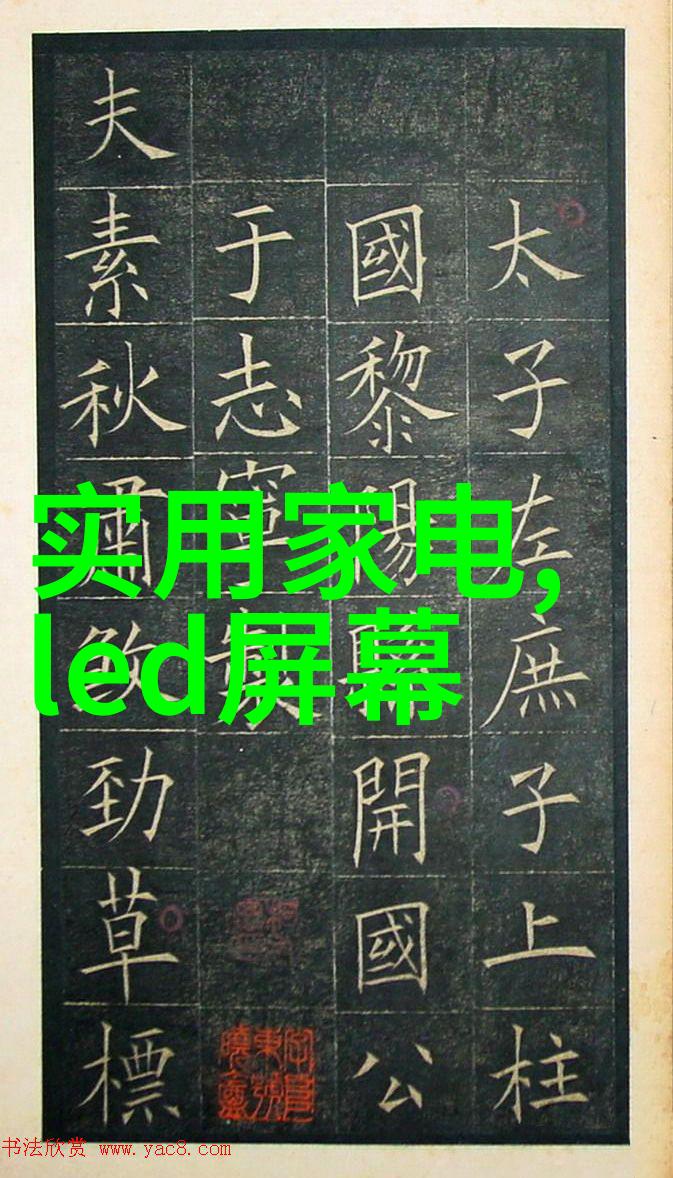 太子左庶子上柱
國黎陽縣開國公
于志寧製
夫素秋肅勁草標
实用家电,
led屏幕
书法欣赏 www.yac8.com